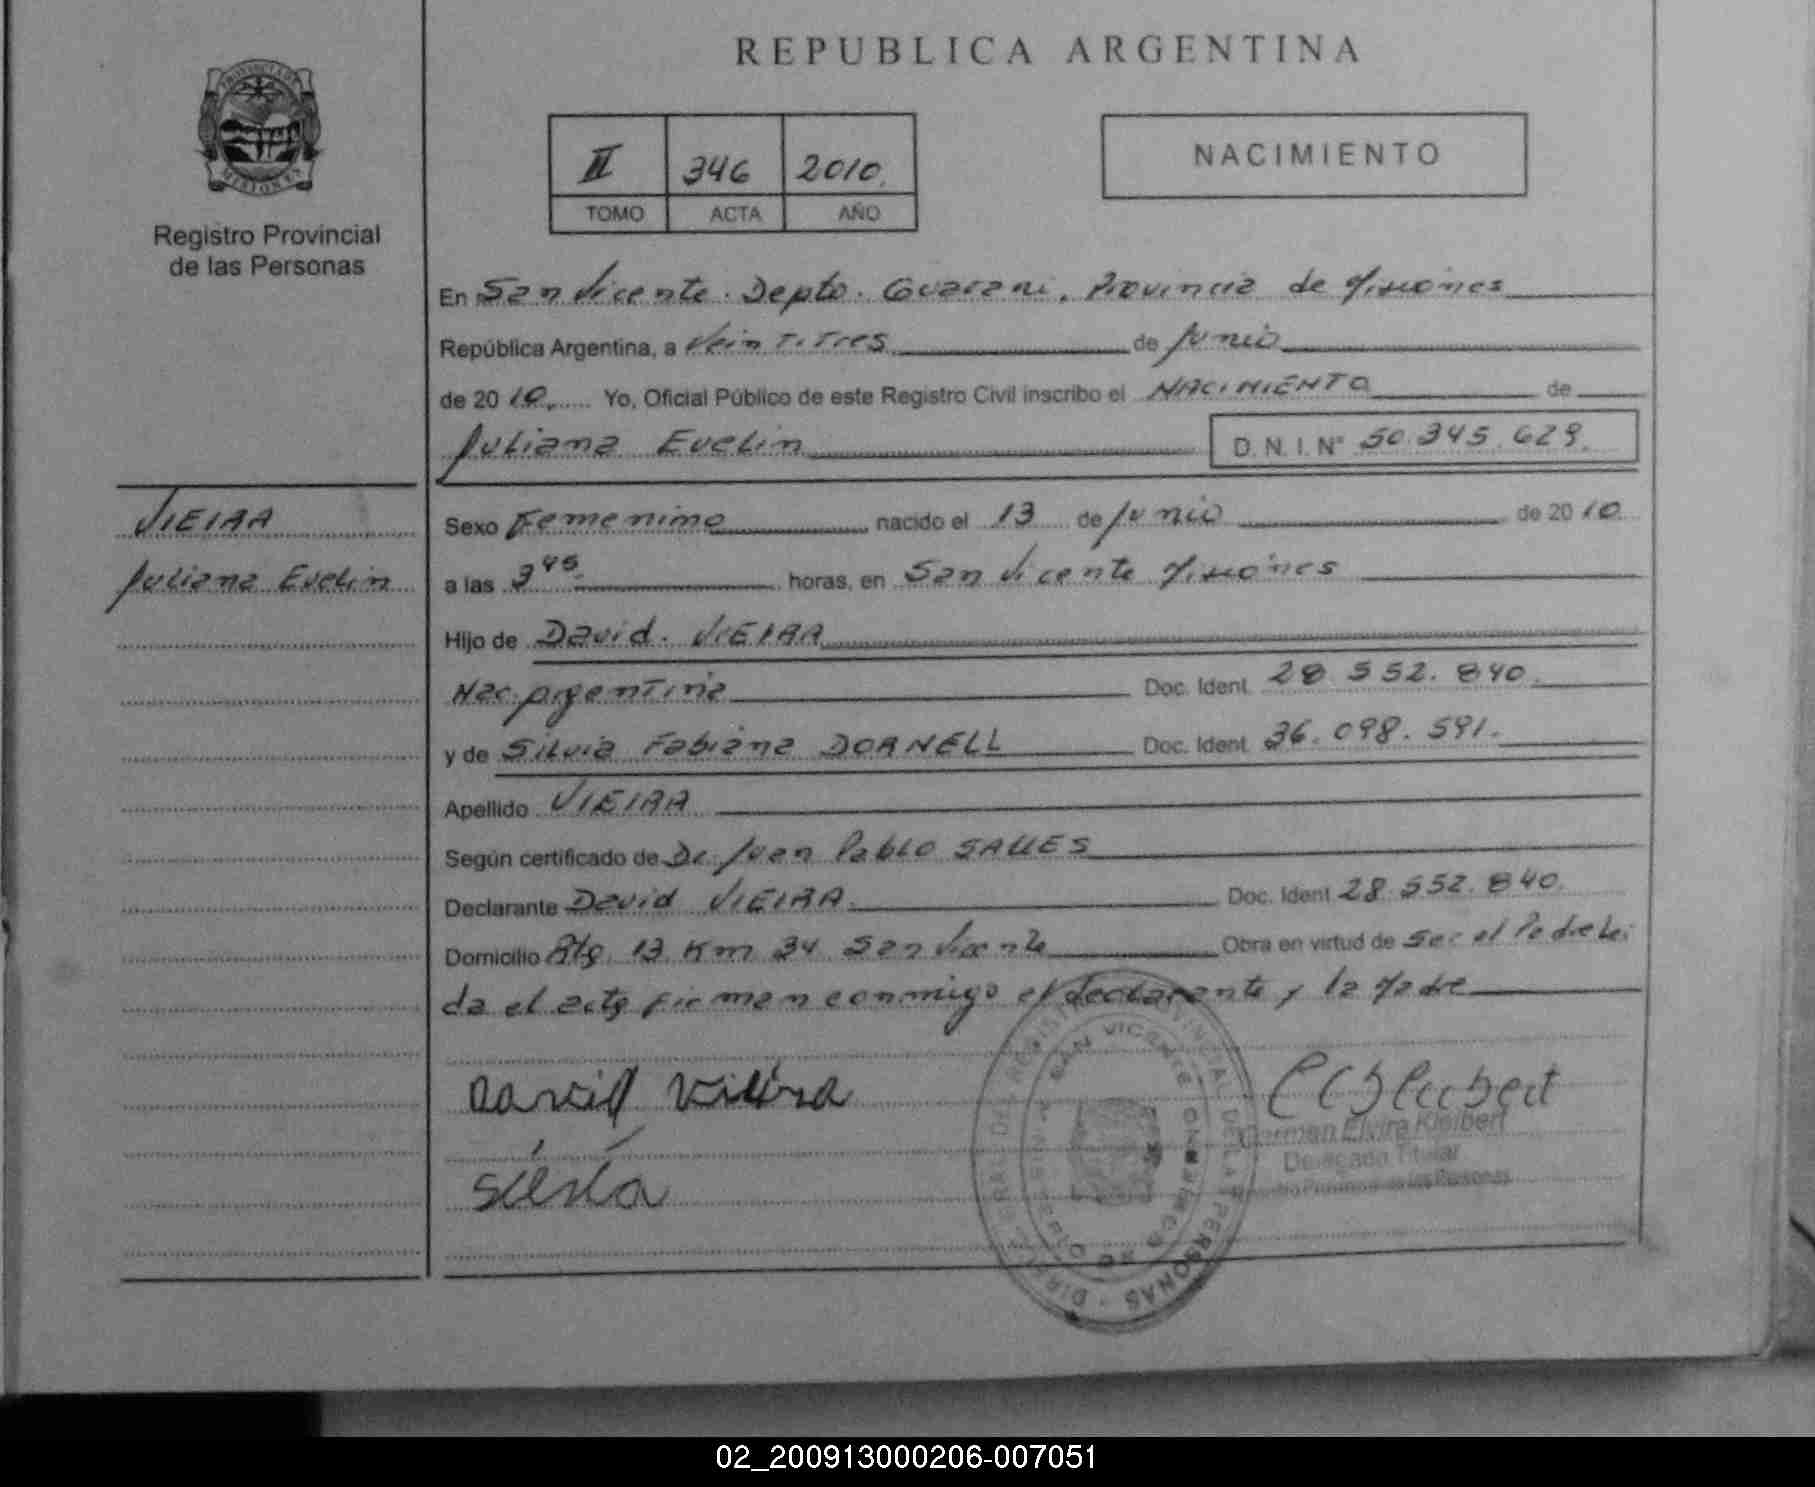 REPUBLICA ARGENTINA
PROVINCIA DE
MISIONES
Registro Provincial
de las Personas
II 346 2010.
TOMO ACTA AÑO
NACIMIENTO
En San Vicente. Depto. Guarani, Provincia de Misiones
República Argentina, a Veintitres de Junio
de 2010. Yo, Oficial Público de este Registro Civil inscribo el NACIMIENTO de
Juliana Evelin D. N. I. Nº 50.345.629.
VIEIRA
Juliana Evelin
Sexo Femenino nacido el 13 de Junio de 2010
a las 3 45 horas, en San Vicente Misiones
Hijo de David. VIEIRA
Nac. Argentina Doc. Ident. 28 552. 840.
y de Silvia Fabiana DORNELL Doc. Ident. 36. 098. 591.
Apellido VIEIRA
Según certificado de Dr. Juan Pablo
Declarante David VIEIRA. Doc. Ident 28. 552. 840.
Domicilio 13 Km 34 San Vicente Obra en virtud de ser el Padre Lei
da el acta firman conmigo el declarante y la Madre
David Vieira
Silvia
Carmen Elvira Kleibert
Delegado Titular
Registro Provincial de las Personas
SAN VICENTE
02_200913000206-007051